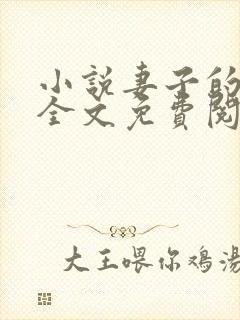 小說妻子的
全文免費閱
大王喂你鸡汤